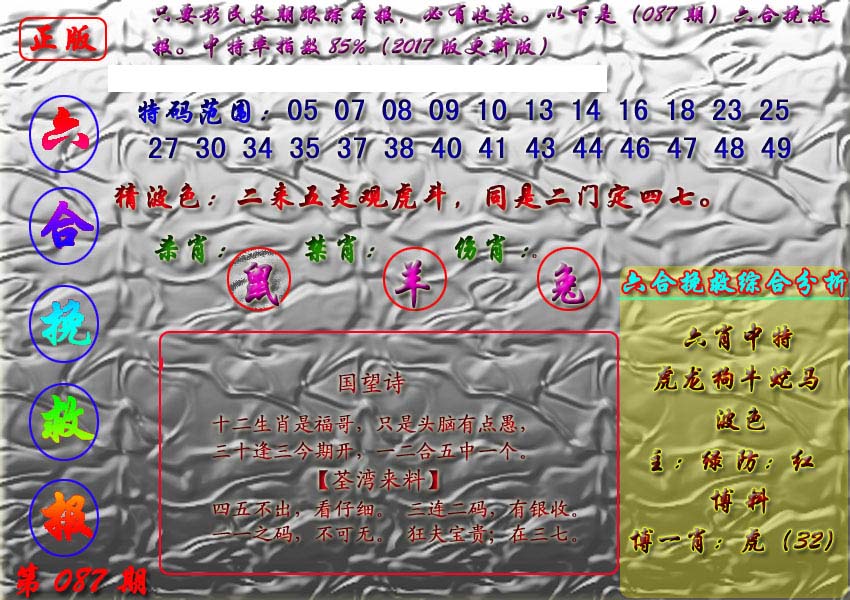 正版
只要彩民长期跟踪本报，必有收获。以下是（087期）六合挽救
报。中特率指数85%（2017版更新版）
六合挽救报
特码范围：05 07 08 09 10 13 14 16 18 23 25
27 30 34 35 37 38 40 41 43 44 46 47 48 49
猜波色：二来五走观虎斗，同是二门定四七。
杀肖：鼠 禁肖：羊 伤肖：兔。
国望诗
十二生肖是福哥，只是头脑有点愚，
三十逢三今期开，一二合五中一个。
【荃湾来料】
四五不出，看仔细。 三连二码，有银收。
一一之码，不可无。 狂夫宝贵；在三七。
六合挽救综合分析
六肖中特
虎龙狗牛蛇马
波色
主：绿防：红
博料
博一肖：虎（32）
第087期